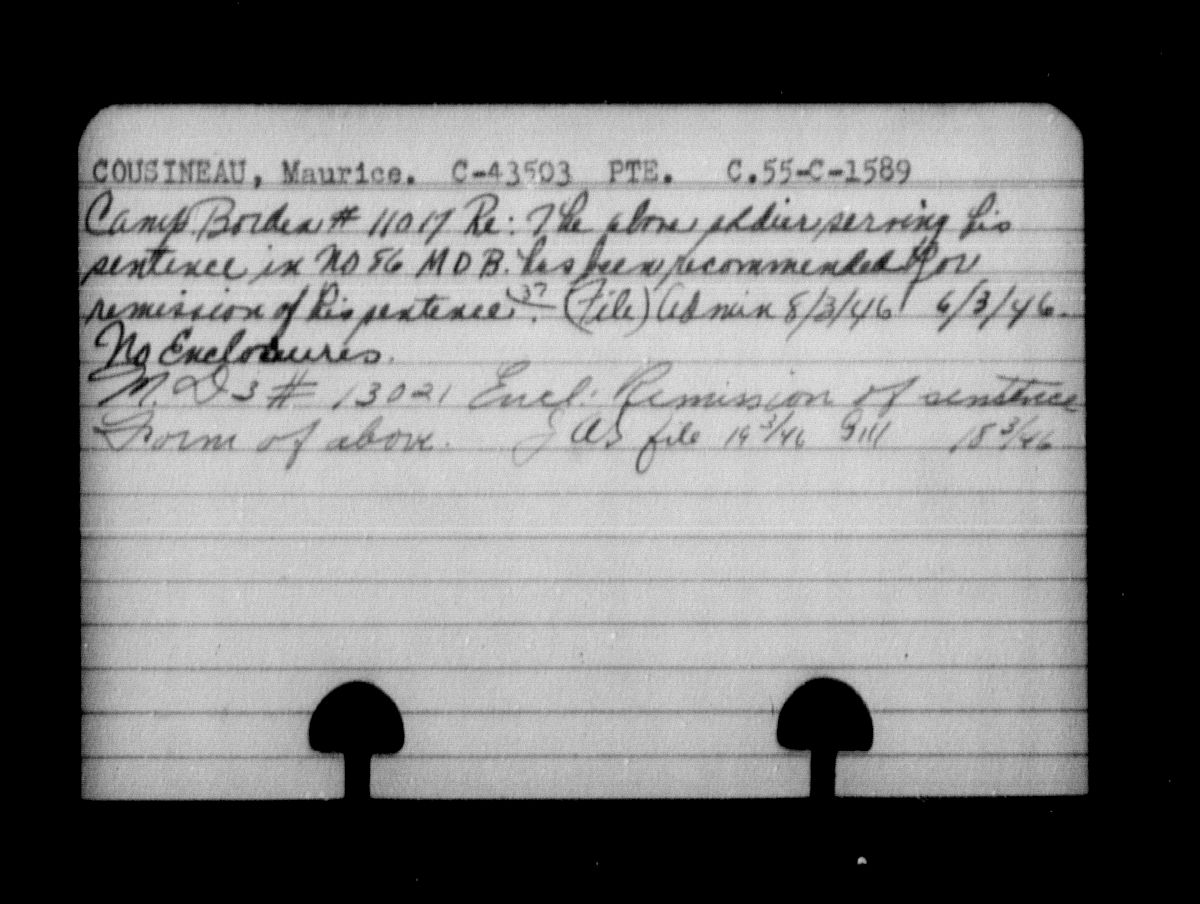 COUSINEAU, Maurice. C-43503 PTE. C.55-C-1589
Camp Borden # 11017 Re: The above soldier serving his
sentence in No 56 M D B. has been recommended for
remission of his sentence. 37 (File) Admin 8/3/46 6/3/46.
No Enclosures.
M. D 3 # 13021 Encl: Remission of sentence
Form of above. file 19 3/46 18 3/46